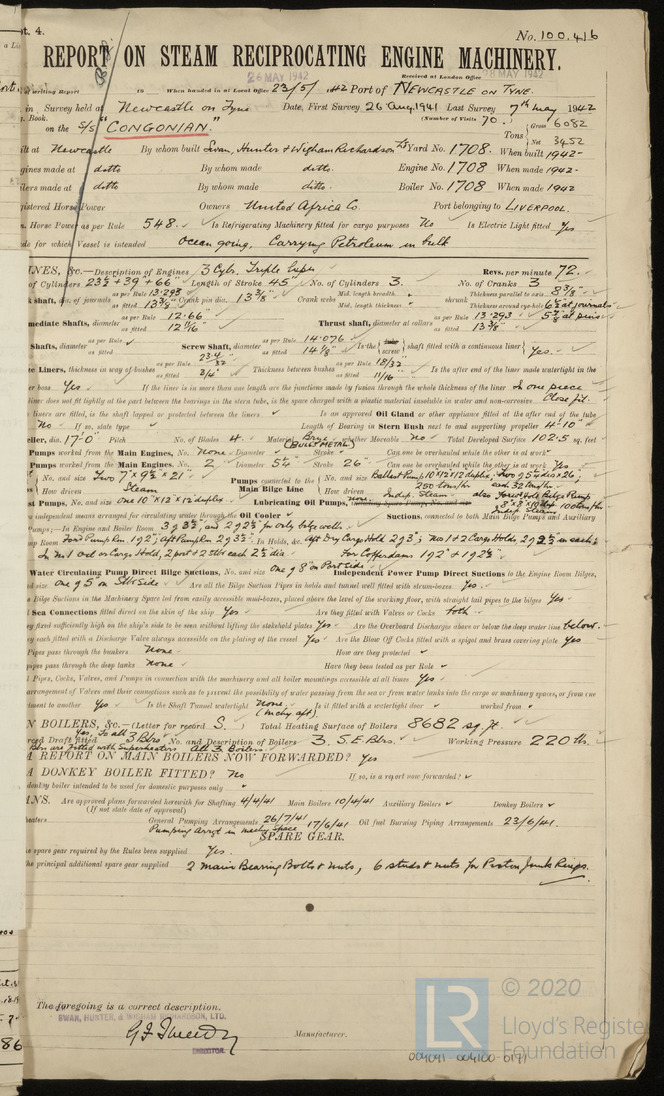 No. 100.416
REPORT ON STEAM RECIPROCATING ENGINE MACHINERY.
Received at London Office 28 MAY 1942
26 MAY 1942
of writing Report 19 When handed in at Local Office 23/5/ 1942 Port of NEWCASTLE ON TYNE.
in Survey held at Newcastle on Tyne Date, First Survey 26 Aug. 1941 Last Survey 7th May 1942
Book. (Number of Visits 70.)
on the S/S "CONGONIAN." Tons { Gross 6082 Net 3452
ilt at Newcastle By whom built Swan, Hunter & Wigham Richardson Ltd Yard No. 1708. When built 1942-
gines made at ditto By whom made ditto. Engine No. 1708 When made 1942-
ilers made at ditto By whom made ditto. Boiler No. 1708 When made 1942
gistered Horse Power Owners United Africa Co. Port belonging to LIVERPOOL.
n. Horse Power as per Rule 548. Is Refrigerating Machinery fitted for cargo purposes No Is Electric Light fitted Yes
de for which Vessel is intended Ocean going, Carrying Petroleum in bulk
INES, &c.—Description of Engines 3 Cyls. Triple Revs. per minute 72.
of Cylinders 23½ + 39 + 66" Length of Stroke 45" No. of Cylinders 3. No. of Cranks 3
k shaft, dia. of journals as per Rule 13.293 as fitted 13⅜" Crank pin dia. 13⅜" Crank webs Mid. length breadth Mid. length thickness shrunk Thickness parallel to axis 8⅜" Thickness around eye-hole
mediate Shafts, diameter as per Rule 12.66" as fitted 12 11/16" Thrust shaft, diameter at collars as per Rule 13.293 as fitted 13⅜"
Shafts, diameter as per Rule as fitted Screw Shaft, diameter as per Rule 14.076 as fitted 14⅛" Is the { screw } shaft fitted with a continuous liner { Yes.
e Liners, thickness in way of bushes as per Rule as fitted 3/4" Thickness between bushes as per Rule as fitted 11/16" Is the after end of the liner made watertight in the
er boss. Yes. If the liner is in more than one length are the junctions made by fusion through the whole thickness of the liner In one piece
liner does not fit tightly at the part between the bearings in the stern tube, is the space charged with a plastic material insoluble in water and non-corrosive Close fit.
liners are fitted, is the shaft lapped or protected between the liners. Is an approved Oil Gland or other appliance fitted at the after end of the tube
No If so, state type Length of Bearing in Stern Bush next to and supporting propeller 4'-10"
eller, dia. 17'-0" Pitch No. of Blades 4. Material whether Moveable No Total Developed Surface 102.5 sq. feet
Pumps worked from the Main Engines, No. None Diameter Stroke Can one be overhauled while the other is at work
Pumps worked from the Main Engines, No. 2 Diameter 5¼" Stroke 26" Can one be overhauled while the other is at work Yes.
{ No. and size Two 7" x 9½" x 21" Pumps connected to the { No. and size
{ How driven Steam Main Bilge Line { How driven Indep. Steam
st Pumps, No. and size one 10" x 12" x 12" duplex. Lubricating Oil Pumps, none
independent means arranged for circulating water through the Oil Cooler Suctions, connected to both Main Bilge Pumps and Auxiliary
Pumps;—In Engine and Boiler Room
mp Room In Holds, &c.
Water Circulating Pump Direct Bilge Suctions, No. and size one 9 8" on Port side. Independent Power Pump Direct Suctions to the Engine Room Bilges,
nd size one 9 5" on Stb. side Are all the Bilge Suction Pipes in holds and tunnel well fitted with strum-boxes Yes.
e Bilge Suctions in the Machinery Space led from easily accessible mud-boxes, placed above the level of the working floor, with straight tail pipes to the bilges Yes
l Sea Connections fitted direct on the skin of the ship Yes Are they fitted with Valves or Cocks both.
y fixed sufficiently high on the ship's side to be seen without lifting the stokehold plates Yes Are the Overboard Discharges above or below the deep water line below.
y each fitted with a Discharge Valve always accessible on the plating of the vessel Yes Are the Blow Off Cocks fitted with a spigot and brass covering plate Yes
Pipes pass through the bunkers none How are they protected
pipes pass through the deep tanks none Have they been tested as per Rule
l Pipes, Cocks, Valves, and Pumps in connection with the machinery and all boiler mountings accessible at all times Yes
arrangement of Valves and their connections such as to prevent the possibility of water passing from the sea or from water tanks into the cargo or machinery spaces, or from one
tment to another Yes Is the Shaft Tunnel watertight None. (Mchy aft) Is it fitted with a watertight door worked from
N BOILERS, &c.—(Letter for record S.) Total Heating Surface of Boilers 8682 sq. ft.
rced Draft fitted Yes, To all 3 Blrs No. and Description of Boilers 3. S.E. Blrs. Working Pressure 220 lb.
Blrs are fitted with Superheaters All 3 Boilers.
A REPORT ON MAIN BOILERS NOW FORWARDED? Yes
A DONKEY BOILER FITTED? No If so, is a report now forwarded?
donkey boiler intended to be used for domestic purposes only
ANS. Are approved plans forwarded herewith for Shafting 4/4/41 Main Boilers 10/4/41 Auxiliary Boilers Donkey Boilers
(If not state date of approval)
heaters General Pumping Arrangements 26/7/41 Oil fuel Burning Piping Arrangements 23/6/41.
Pumping Arrgt in mchy space 17/6/41
SPARE GEAR.
e spare gear required by the Rules been supplied Yes.
he principal additional spare gear supplied 2 main Bearing Bolts & nuts, 6 studs & nuts for Piston Junk Rings.
The foregoing is a correct description.
SWAN, HUNTER, & WIGHAM RICHARDSON, LTD.
DIRECTOR. Manufacturer.
© 2020
LR
Lloyd's Register
Foundation
004091-004100-0191